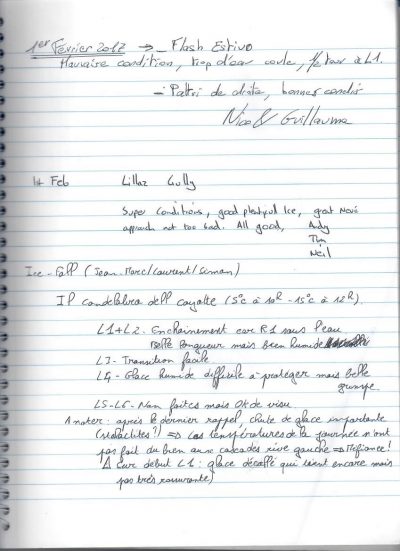 1er Février 2012 → - Flash Estivo
Mauvaise condition, trop d'eau coule, retour à L1.
- Pattri de droite, bonnes condis
Nico & Guillaume
1st Feb Lillaz Gully
Super Conditions, good plentyful Ice, great Nevé
approach not too bad. All good, Andy
Tim
Neil
Ice-Fall (Jean-Marc/Laurent/Simon)
IP candelabra dell coyotte (5°c à 10h - 15°c à 12h).
L1+L2 - Enchainement car R1 sous l'eau
Belle longueur mais bien humide
L3 - Transition facile
L4 - Glace humide difficile à protéger mais belle
grimpe
L5-L6 - Non faites mais OK de visu
A noter : après le dernier rappel, chute de glace importante
(stalactites ?) ⇒ Les températures de la journée n'ont
pas fait du bien aux cascades rive gauche ⇒ Méfiance!
Δ Sur début L1 : glace décollée qui tient encore mais
pas très rassurante)